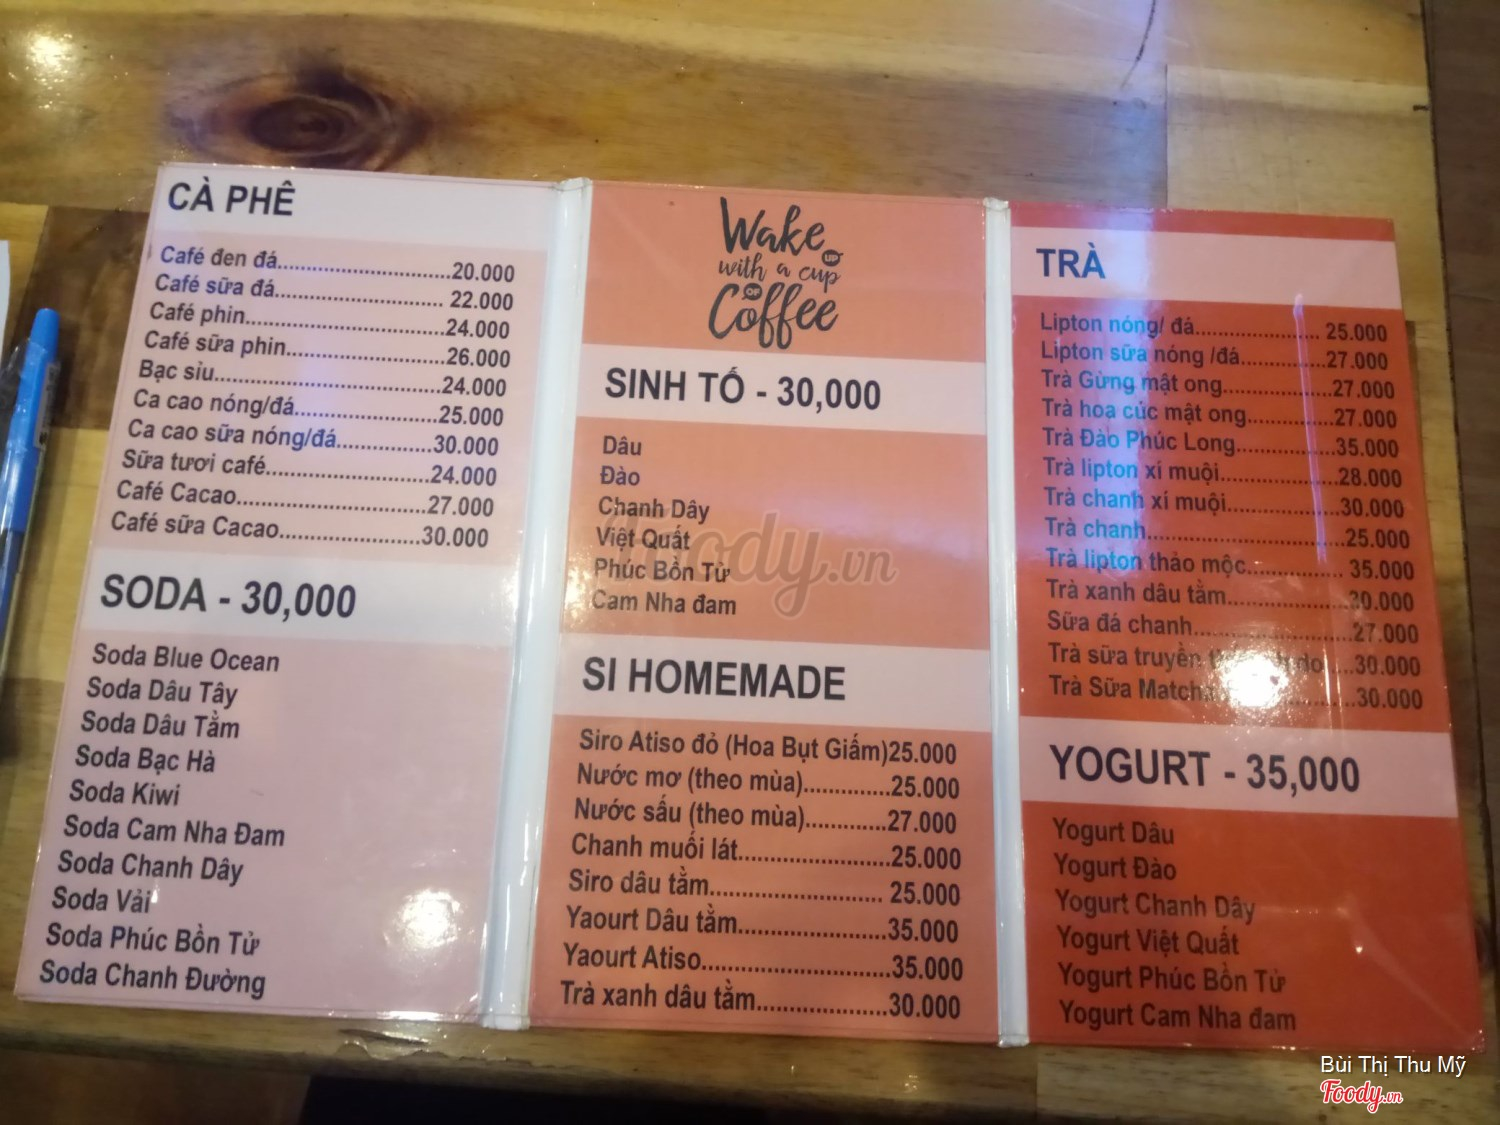 CÀ PHÊ
Café đen đá..............................20.000
Café sữa đá............................. 22.000
Café phin..................................24.000
Café sữa phin...........................26.000
Bạc sỉu.......................................24.000
Ca cao nóng/đá.........................25.000
Ca cao sữa nóng/đá................30.000
Sữa tươi café............................24.000
Café Cacao................................27.000
Café sữa Cacao........................30.000
SODA - 30,000
Soda Blue Ocean
Soda Dâu Tây
Soda Dâu Tằm
Soda Bạc Hà
Soda Kiwi
Soda Cam Nha Đam
Soda Chanh Dây
Soda Vải
Soda Phúc Bồn Tử
Soda Chanh Đường
Wake
UP
with a cup
OF
Coffee
SINH TỐ - 30,000
Dâu
Đào
Chanh Dây
Việt Quất
Phúc Bồn Tử
Cam Nha đam
SI HOMEMADE
Siro Atiso đỏ (Hoa Bụt Giấm)25.000
Nước mơ (theo mùa)..............25.000
Nước sấu (theo mùa).............27.000
Chanh muối lát........................25.000
Siro dâu tằm........................... 25.000
Yaourt Dâu tằm.......................35.000
Yaourt Atiso.............................35.000
Trà xanh dâu tằm....................30.000
TRÀ
Lipton nóng/ đá.................... 25.000
Lipton sữa nóng /đá..............27.000
Trà Gừng mật ong..................27.000
Trà hoa cúc mật ong..............27.000
Trà Đào Phúc Long................35.000
Trà lipton xí muội...................28.000
Trà chanh xí muội..................30.000
Trà chanh................................25.000
Trà lipton thảo mộc............... 35.000
Trà xanh dâu tằm...................30.000
Sữa đá chanh.........................27.000
Trà sữa truyền .....30.000
Trà Sữa Matcha.....30.000
YOGURT - 35,000
Yogurt Dâu
Yogurt Đào
Yogurt Chanh Dây
Yogurt Việt Quất
Yogurt Phúc Bồn Tử
Yogurt Cam Nha đam
Foody.vn
Bùi Thị Thu Mỹ
Foody.vn